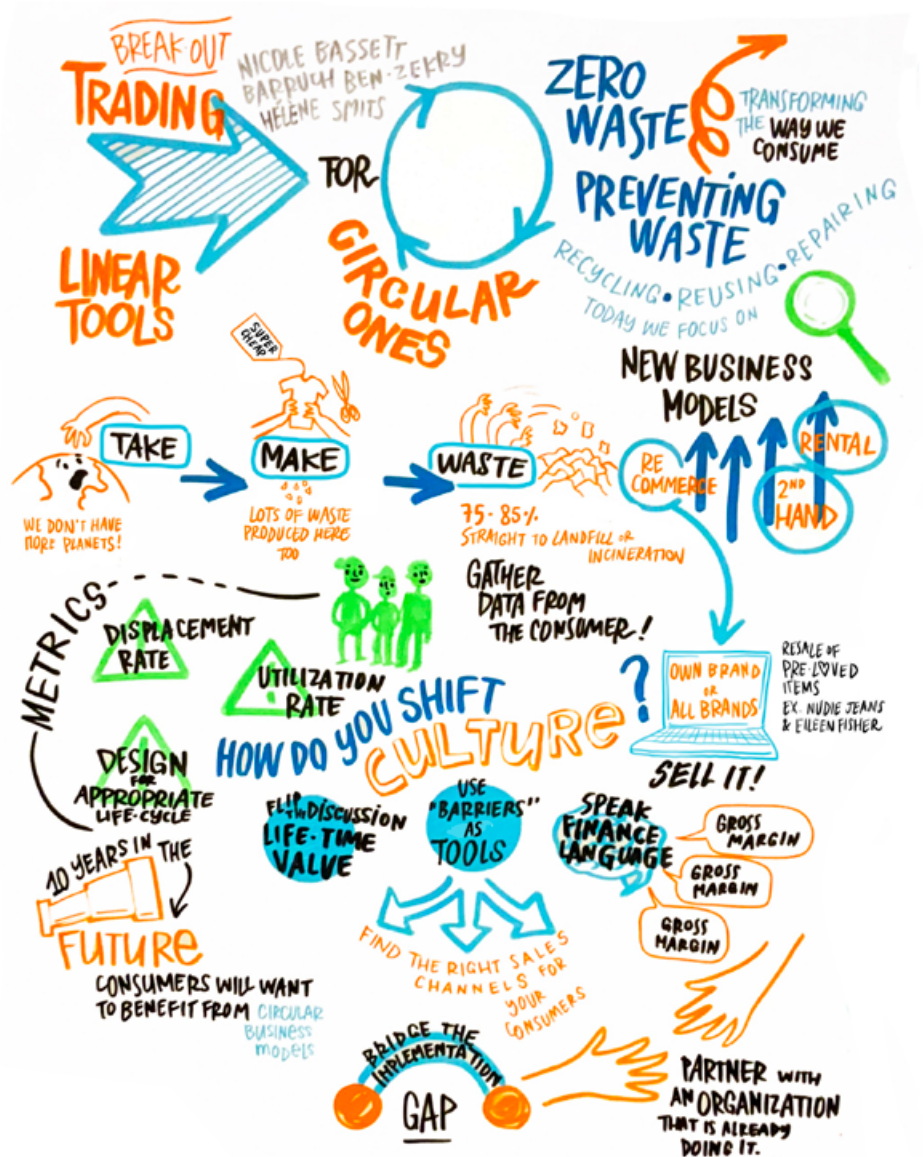 BREAK-OUT
TRADING
LINEAR
TOOLS
NICOLE BASSETT
BARRUCH BEN-ZEKRY
HÉLÈNE SMITS
FOR
CIRCULAR
ONES
ZERO
WASTE
TRANSFORMING
THE WAY WE
CONSUME
PREVENTING
WASTE
RECYCLING • REUSING • REPAIRING
TODAY WE FOCUS ON
NEW BUSINESS
MODELS
RE
COMMERCE
2ND
HAND
RENTAL
TAKE
WE DON'T HAVE
MORE PLANETS!
SUPER
CHEAP
MAKE
LOTS OF WASTE
PRODUCED HERE
TOO
WASTE
75-85%
STRAIGHT TO LANDFILL OR
INCINERATION
METRICS
DISPLACEMENT
RATE
UTILIZATION
RATE
DESIGN
FOR
APPROPRIATE
LIFE-CYCLE
GATHER
DATA FROM
THE CONSUMER!
OWN BRAND
OR
ALL BRANDS
RESALE OF
PRE-LOVED
ITEMS
EX. NUDIE JEANS
& EILEEN FISHER
SELL IT!
HOW DO YOU SHIFT
CULTURE?
FLIP
THE DISCUSSION
LIFE-TIME
VALUE
USE
"BARRIERS"
AS
TOOLS
SPEAK
FINANCE
LANGUAGE
GROSS
MARGIN
GROSS
MARGIN
GROSS
MARGIN
10 YEARS IN THE
FUTURE
CONSUMERS WILL WANT
TO BENEFIT FROM CIRCULAR
BUSINESS
MODELS
FIND THE RIGHT SALES
CHANNELS FOR
YOUR
CONSUMERS
BRIDGE THE
IMPLEMENTATION
GAP
PARTNER WITH
AN ORGANIZATION
THAT IS ALREADY
DOING IT.